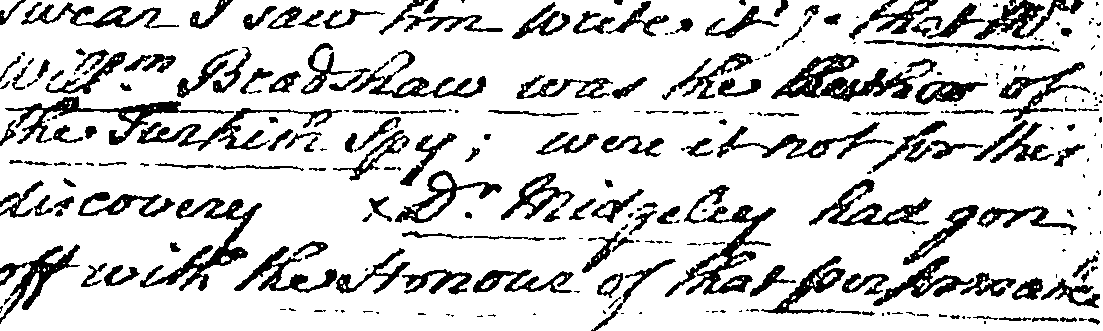 swear I saw him write it) - that Mr.
Willm. Bradshaw was the Author of
the Turkish Spy; were it not for this
discovery × Dr. Midgeley had gon
off with the Honour of that performance